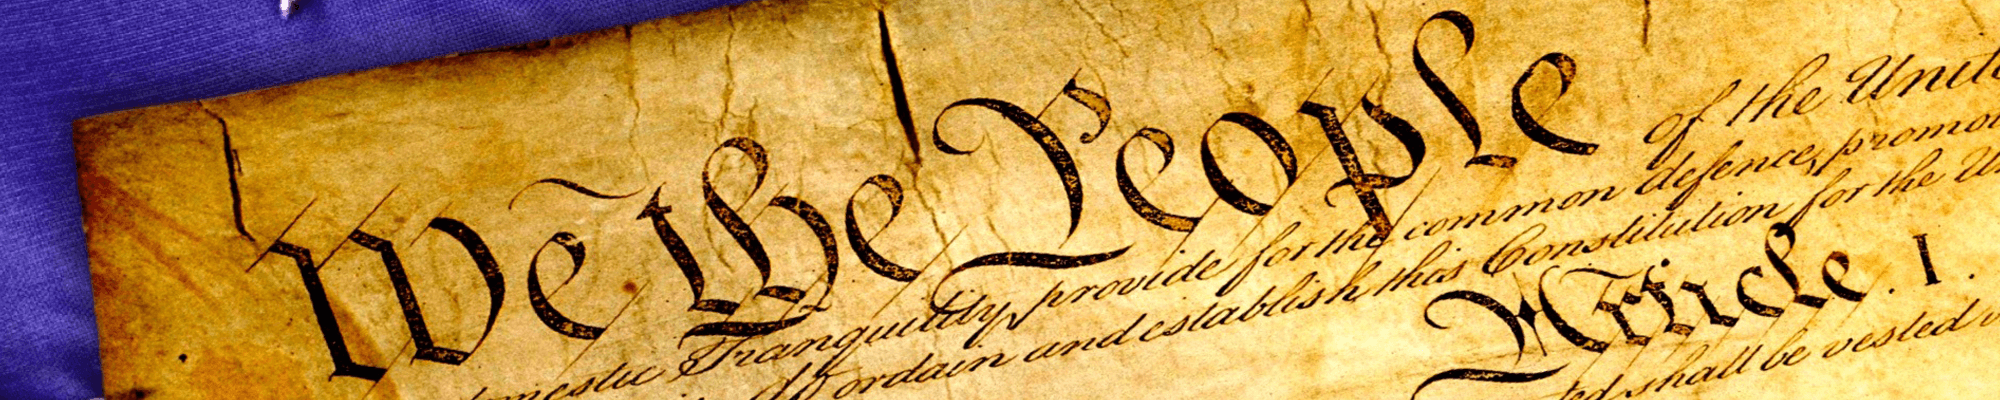 We the People of the Unite
omestic Tranquility, provide for the common defence, promo
ordain and establish this Constitution for the Un
Article. I.
ted shall be vested